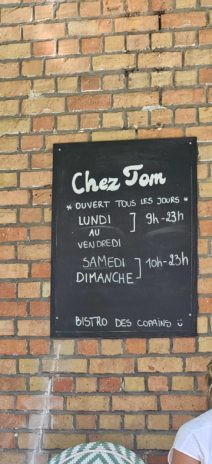 Chez Tom
* OUVERT TOUS LES JOURS *
LUNDI
AU
VENDREDI
] 9h-23h
SAMEDI
DIMANCHE
] 10h-23h
BISTRO DES COPAINS :)